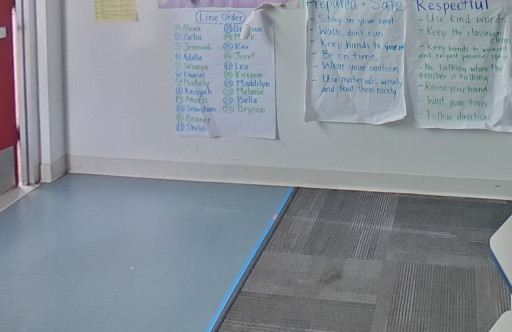 Line Order
Alexa
Zalia
Jeremiah
Adella
Khalan
Nataly
Kariyah
Amaris
Sebastian
Beamer
Rex
Josef
Leo
Kareem
Maddilyn
Melanie
Bella
Bryson
Prepared + Safe
- Stay in your seat
- Walk, don't run
- Keep hands to yourself
- Be on time
- Wear your uniform
- Use materials wisely
and treat them nicely
Respectful
- Use kind words
- Keep the classroom
clean
- Keep hands to yourself
and respect personal space
- No talking when the
teacher is talking
- Raise your hand
- Wait your turn
- Follow directions